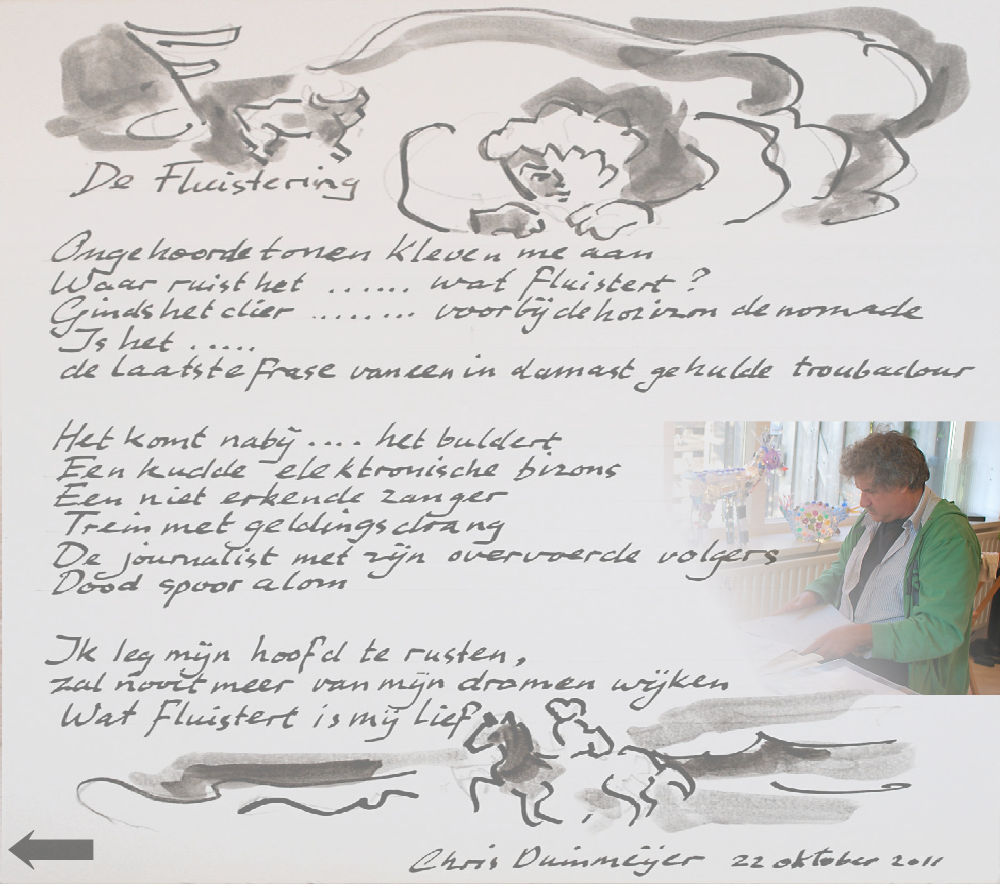 De Fluistering
Ongehoorde tonen kleven me aan
Waar ruist het ...... wat fluistert ?
Ginds het dier ........ voorbij de horizon de nomade
Is het .....
de laatste frase van een in damast gehulde troubadour
Het komt nabij .... het buldert
Een kudde elektronische bizons
Een niet erkende zanger
Trein met geldingsdrang
De journalist met zijn overvoerde volgers
Dood spoor alom
Ik leg mijn hoofd te rusten,
zal nooit meer van mijn dromen wijken
Wat fluistert is mij lief
Chris Duinmeijer 22 oktober 2011